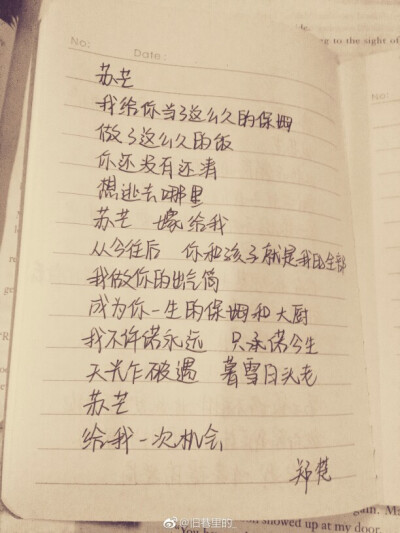 No:
Date:
苏芒
我给你当了这么久的保姆
做了这么久的饭
你还没有还清
想逃去哪里
苏芒 嫁给我
从今往后 你和孩子就是我的全部
我做你的出气筒
成为你一生的保姆和大厨
我不许诺永远 只承诺今生
天光乍破遇 暮雪白头老
苏芒
给我一次机会
郑楚
No:
ng to the sight of
showed up at my door.
@旧巷里的